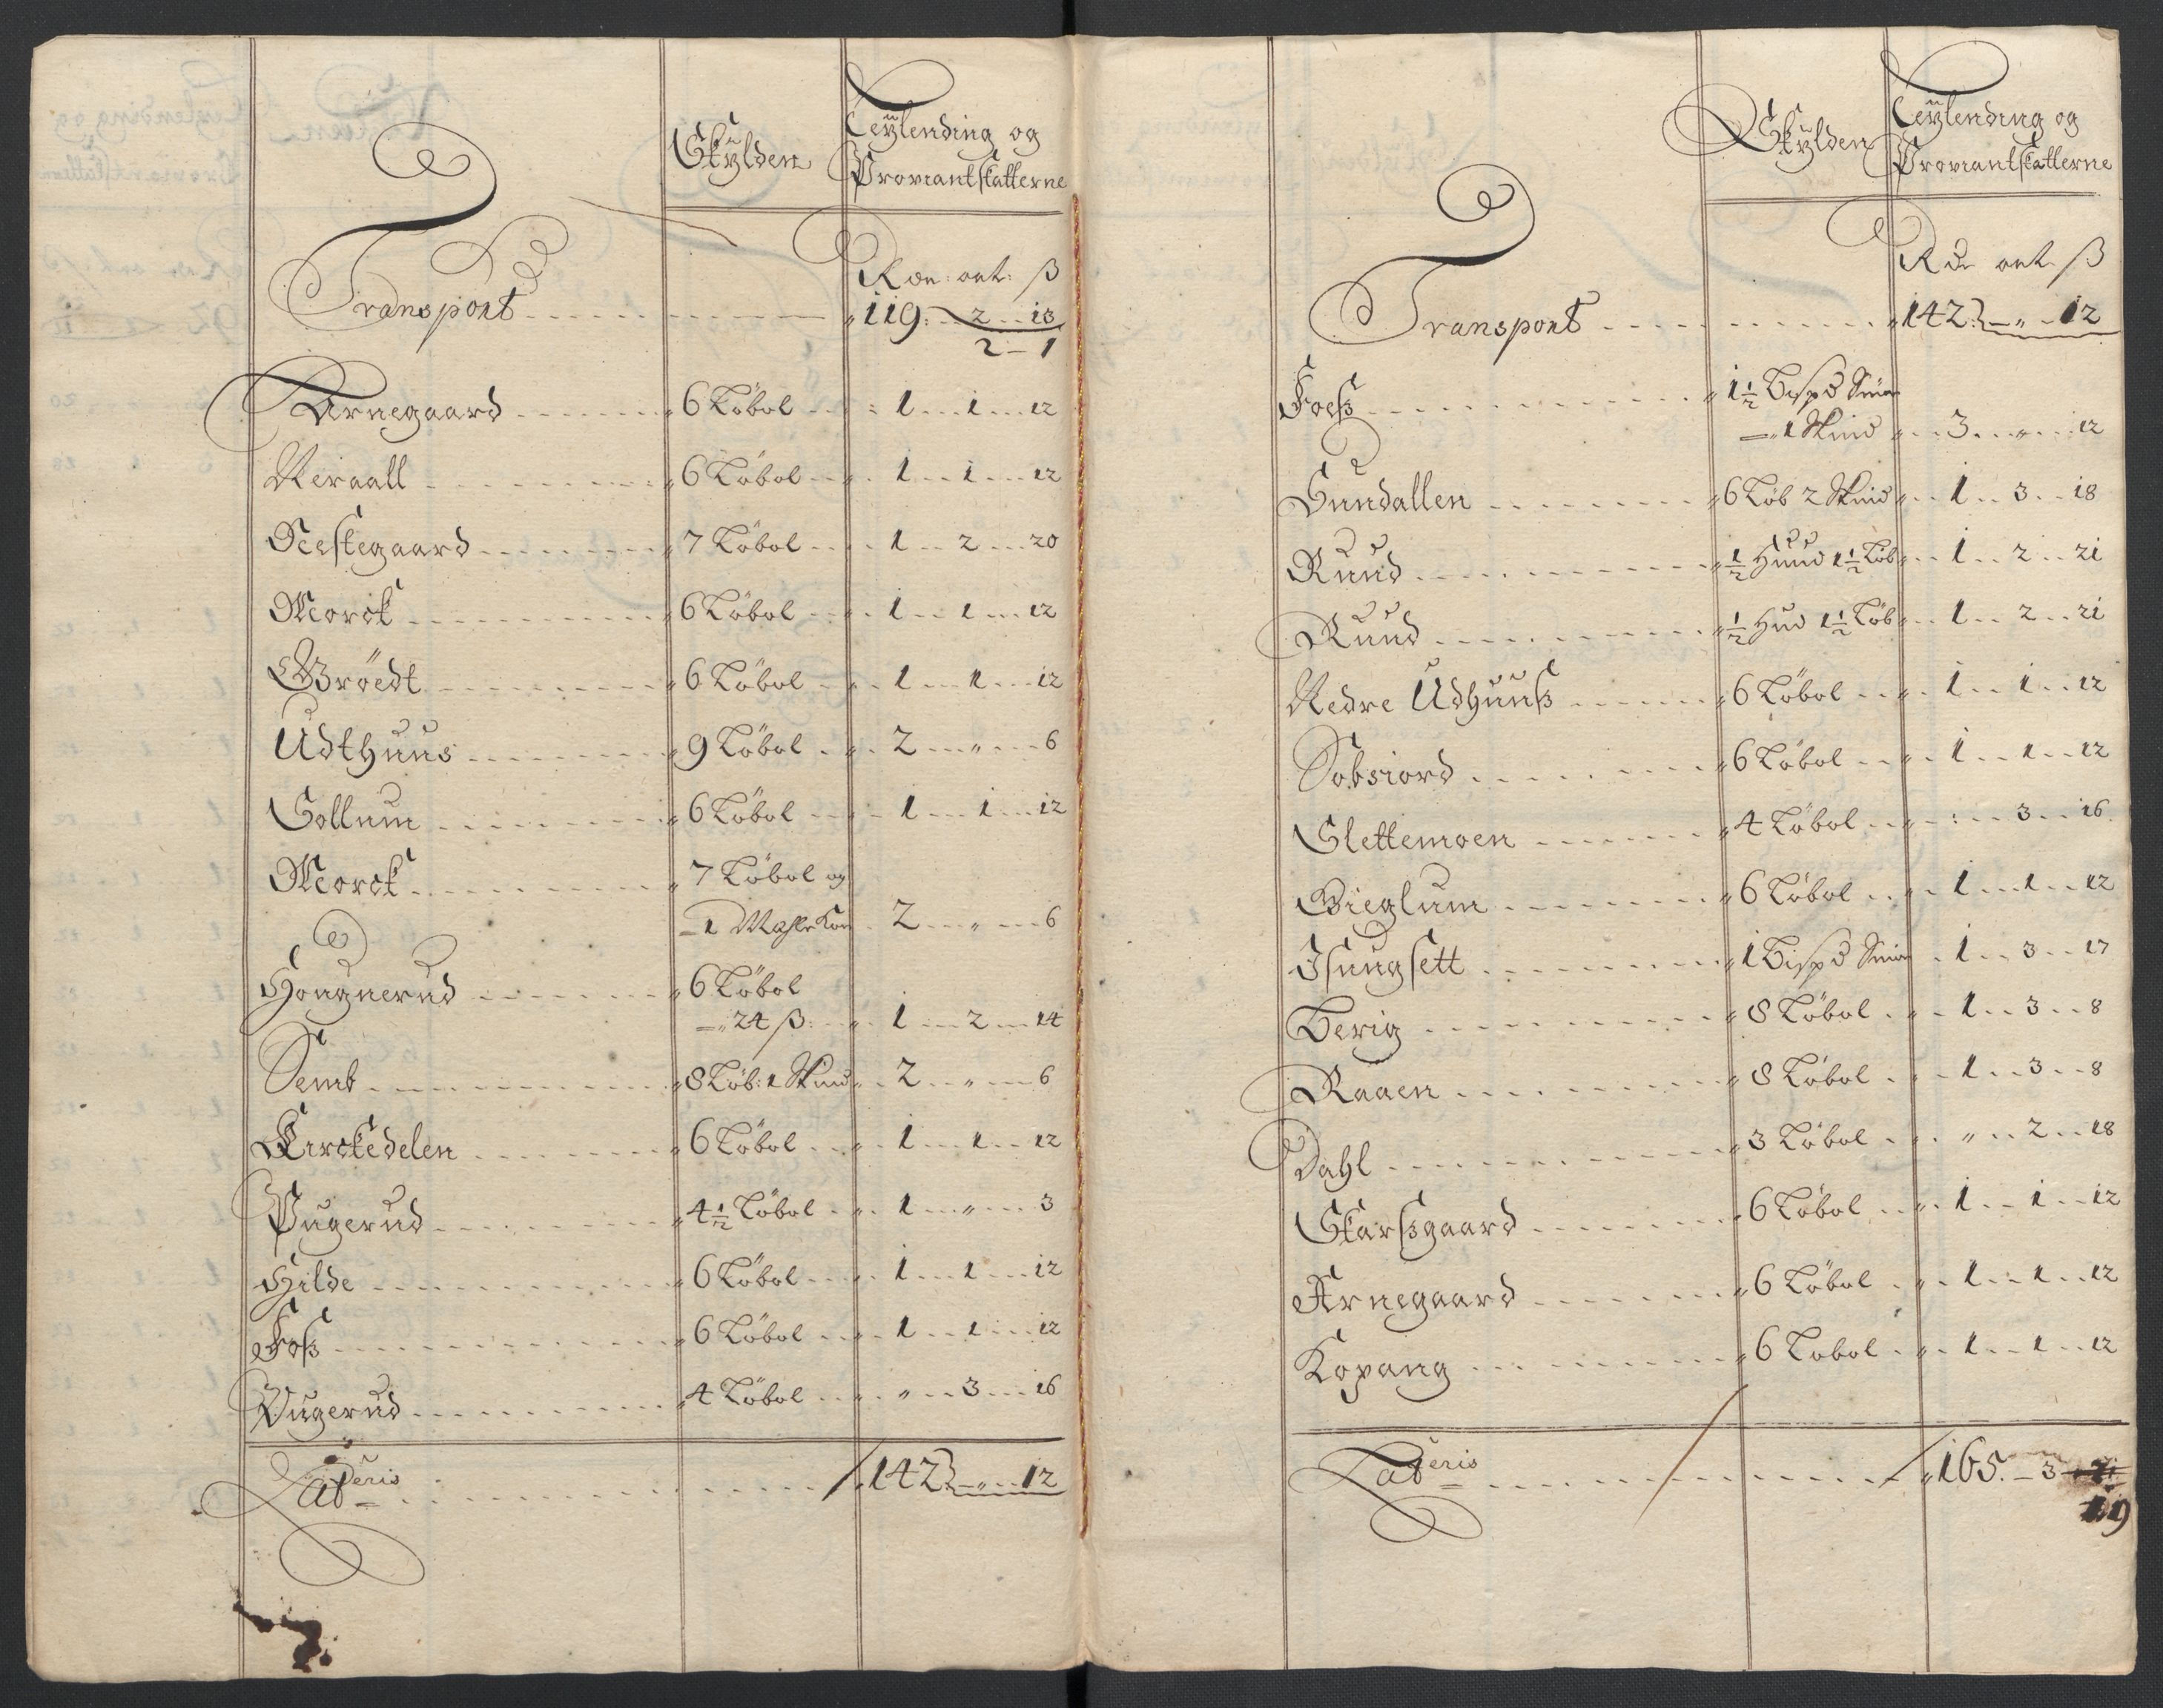 Skÿlden
Leÿlending og
Proviantskatterne
Rdr: ort: ß
Transport 119 2 18
2 – 1
Arnegaard 6 Løbol 1 1 12
Neraall 6 Løbol 1 1 12
Nestegaard 7 Løbol 1 2 20
Morck 6 Løbol 1 1 12
Bröedt 6 Løbol 1 1 12
Udthuus 9 Løbol 2 „ 6
Gollum 6 Løbol 1 1 12
Morck 7 Løbol og
1 Mahler Kon 2 „ 6
Hougnerud 6 Løbol
24 ß: 1 2 14
Semb 8 Løb: 1 Skind 2 „ 6
Kirckedelen 6 Løbol 1 1 12
Pugerud 4½ Løbol 1 „ 3
Hilde 6 Løbol 1 1 12
Foß 6 Løbol 1 1 12
Pugerud 4 Løbol „ 3 16
Lateris 142 „ 12
Skÿlden
Leÿlending og
Proviantskatterne
Rdr ort ß
Transport 142 „ 12
Foeß 1½ Bispd Smör
1 Skind 3 „ 12
Sundallen 6 Løb 2 Skind 1 3 18
Ruud ½ Huud 1½ Løb 1 2 21
Ruud ½ Hud 1½ Løb 1 2 21
Nedre Udhuuß 6 Løbol 1 1 12
Sobsiord 6 Løbol 1 1 12
Slettemoen 4 Løbol 3 16
Bieglum 6 Løbol 1 1 12
Isungsett 1 Bispd Smör 1 3 17
Berig 8 Løbol 1 3 8
Raaen 8 Løbol 1 3 8
Dahl 3 Løbol „ 2 18
Skarßgaard 6 Løbol 1 1 12
Arnegaard 6 Løbol 1 1 12
Kopang 6 Løbol 1 1 12
Lateris 165 3
19